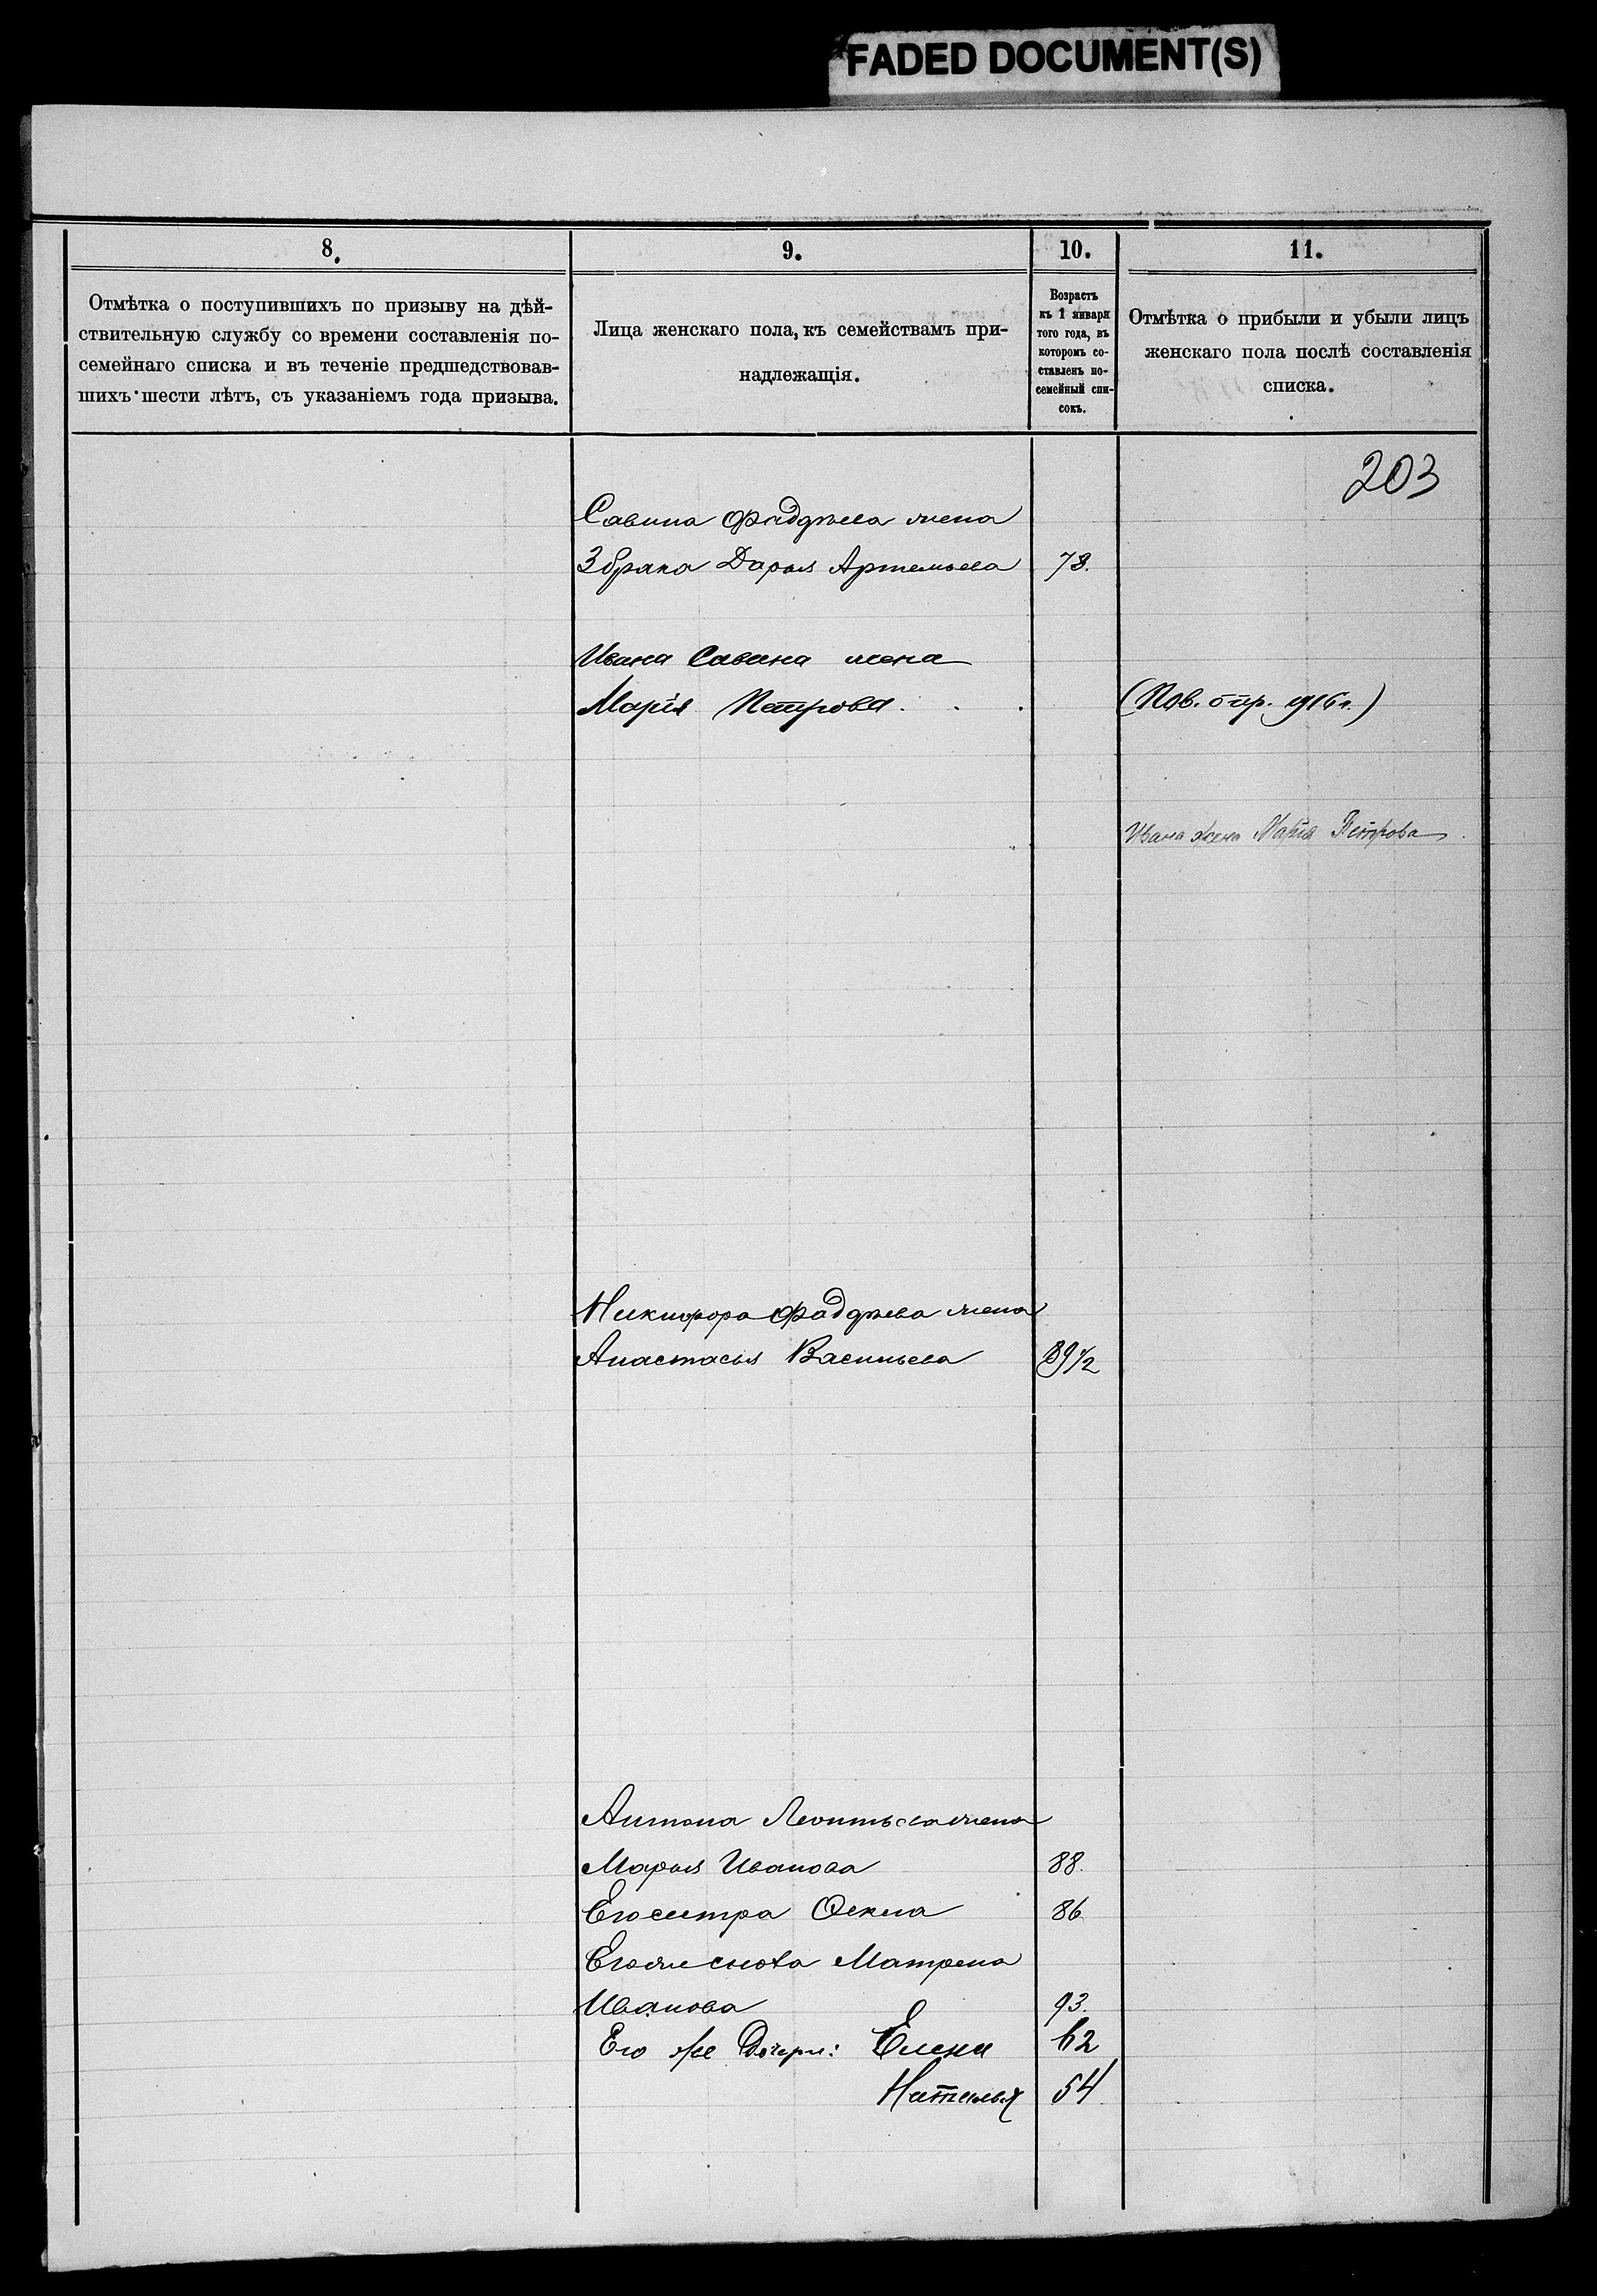 FADED DOCUMENT(S)
8.
Отмѣтка о поступившихъ по призыву на дѣй-
ствительную службу со времени составленія по-
семейнаго списка и въ теченіе предшедствовав-
шихъ шести лѣтъ, съ указаніемъ года призыва.
9.
Лица женскаго пола, къ семействамъ при-
надлежащія.
10.
Возрастъ
къ 1 января
того года, въ
которомъ со-
ставленъ по-
семейный спи-
сокъ.
11.
Отмѣтка о прибыли и убыли лицъ
женскаго пола послѣ составленія
списка.
203
Савина Фаддѣева жена
3 брака Дарья Артемьева 73.
Ивана Савина жена
Марія Петрова . . . (Пов. 1916 г.)
Ивана жена Марія Петрова
Никифора Фаддѣева жена
Анастасья Васильева 89 1/2
Антона Леонтьева жена
Марья Иванова 88.
Его сестра Фекла 86
Его же сноха Матрена
Иванова 93.
Его же Дочери: Елена 62
Наталья 54